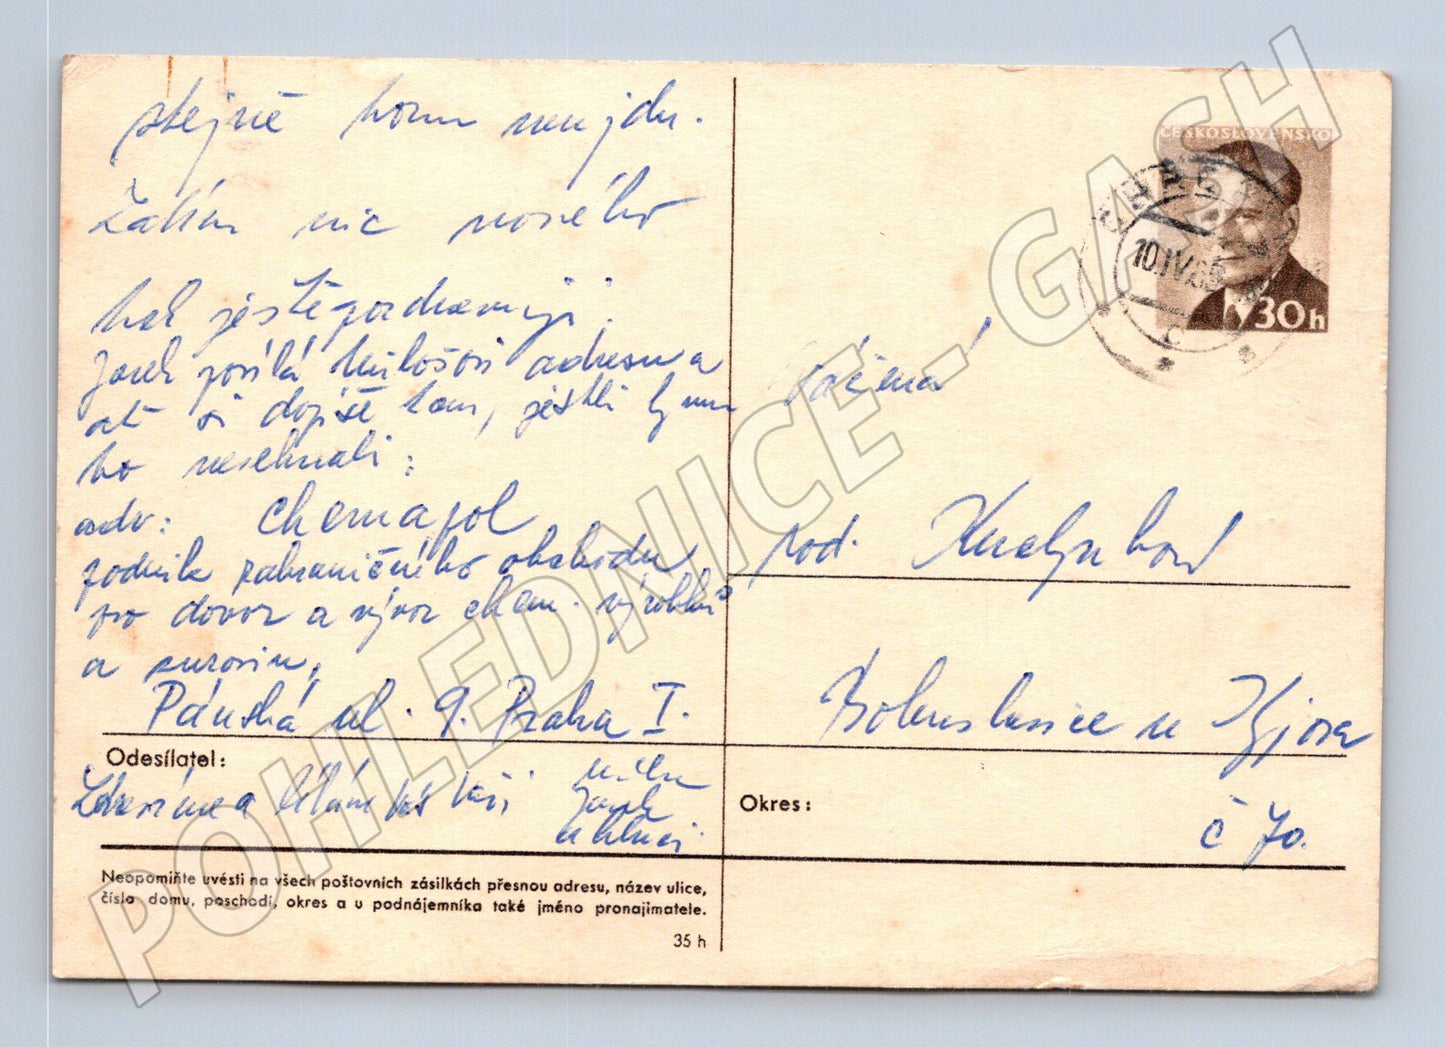 stejně tomu nenjdu.
Zatím nic nového
tak ještě pozdravuji.
Jarek posílá Milošovi adresu a
ať si dopíše tam, jestli
ho nesehnali:
adr: Chemapol
podnik zahraničního obchodu
pro dovoz a vývoz chem. výrobků
a surovin,
Pánská ul. 9. Praha I.
Odesílatel:
Zdravíme a líbám vás
Jarek
a kluci.
Neopomiňte uvésti na všech poštovních zásilkách přesnou adresu, název ulice,
číslo domu, poschodí, okres a u podnájemníka také jméno pronajimatele.
35 h
ČESKOSLOVENSKO
10.IV.65
c
30h
Vážená
rod.
Bohuslavice u Kyjova
Okres:
č 70.
POHLEDNICE - GASH